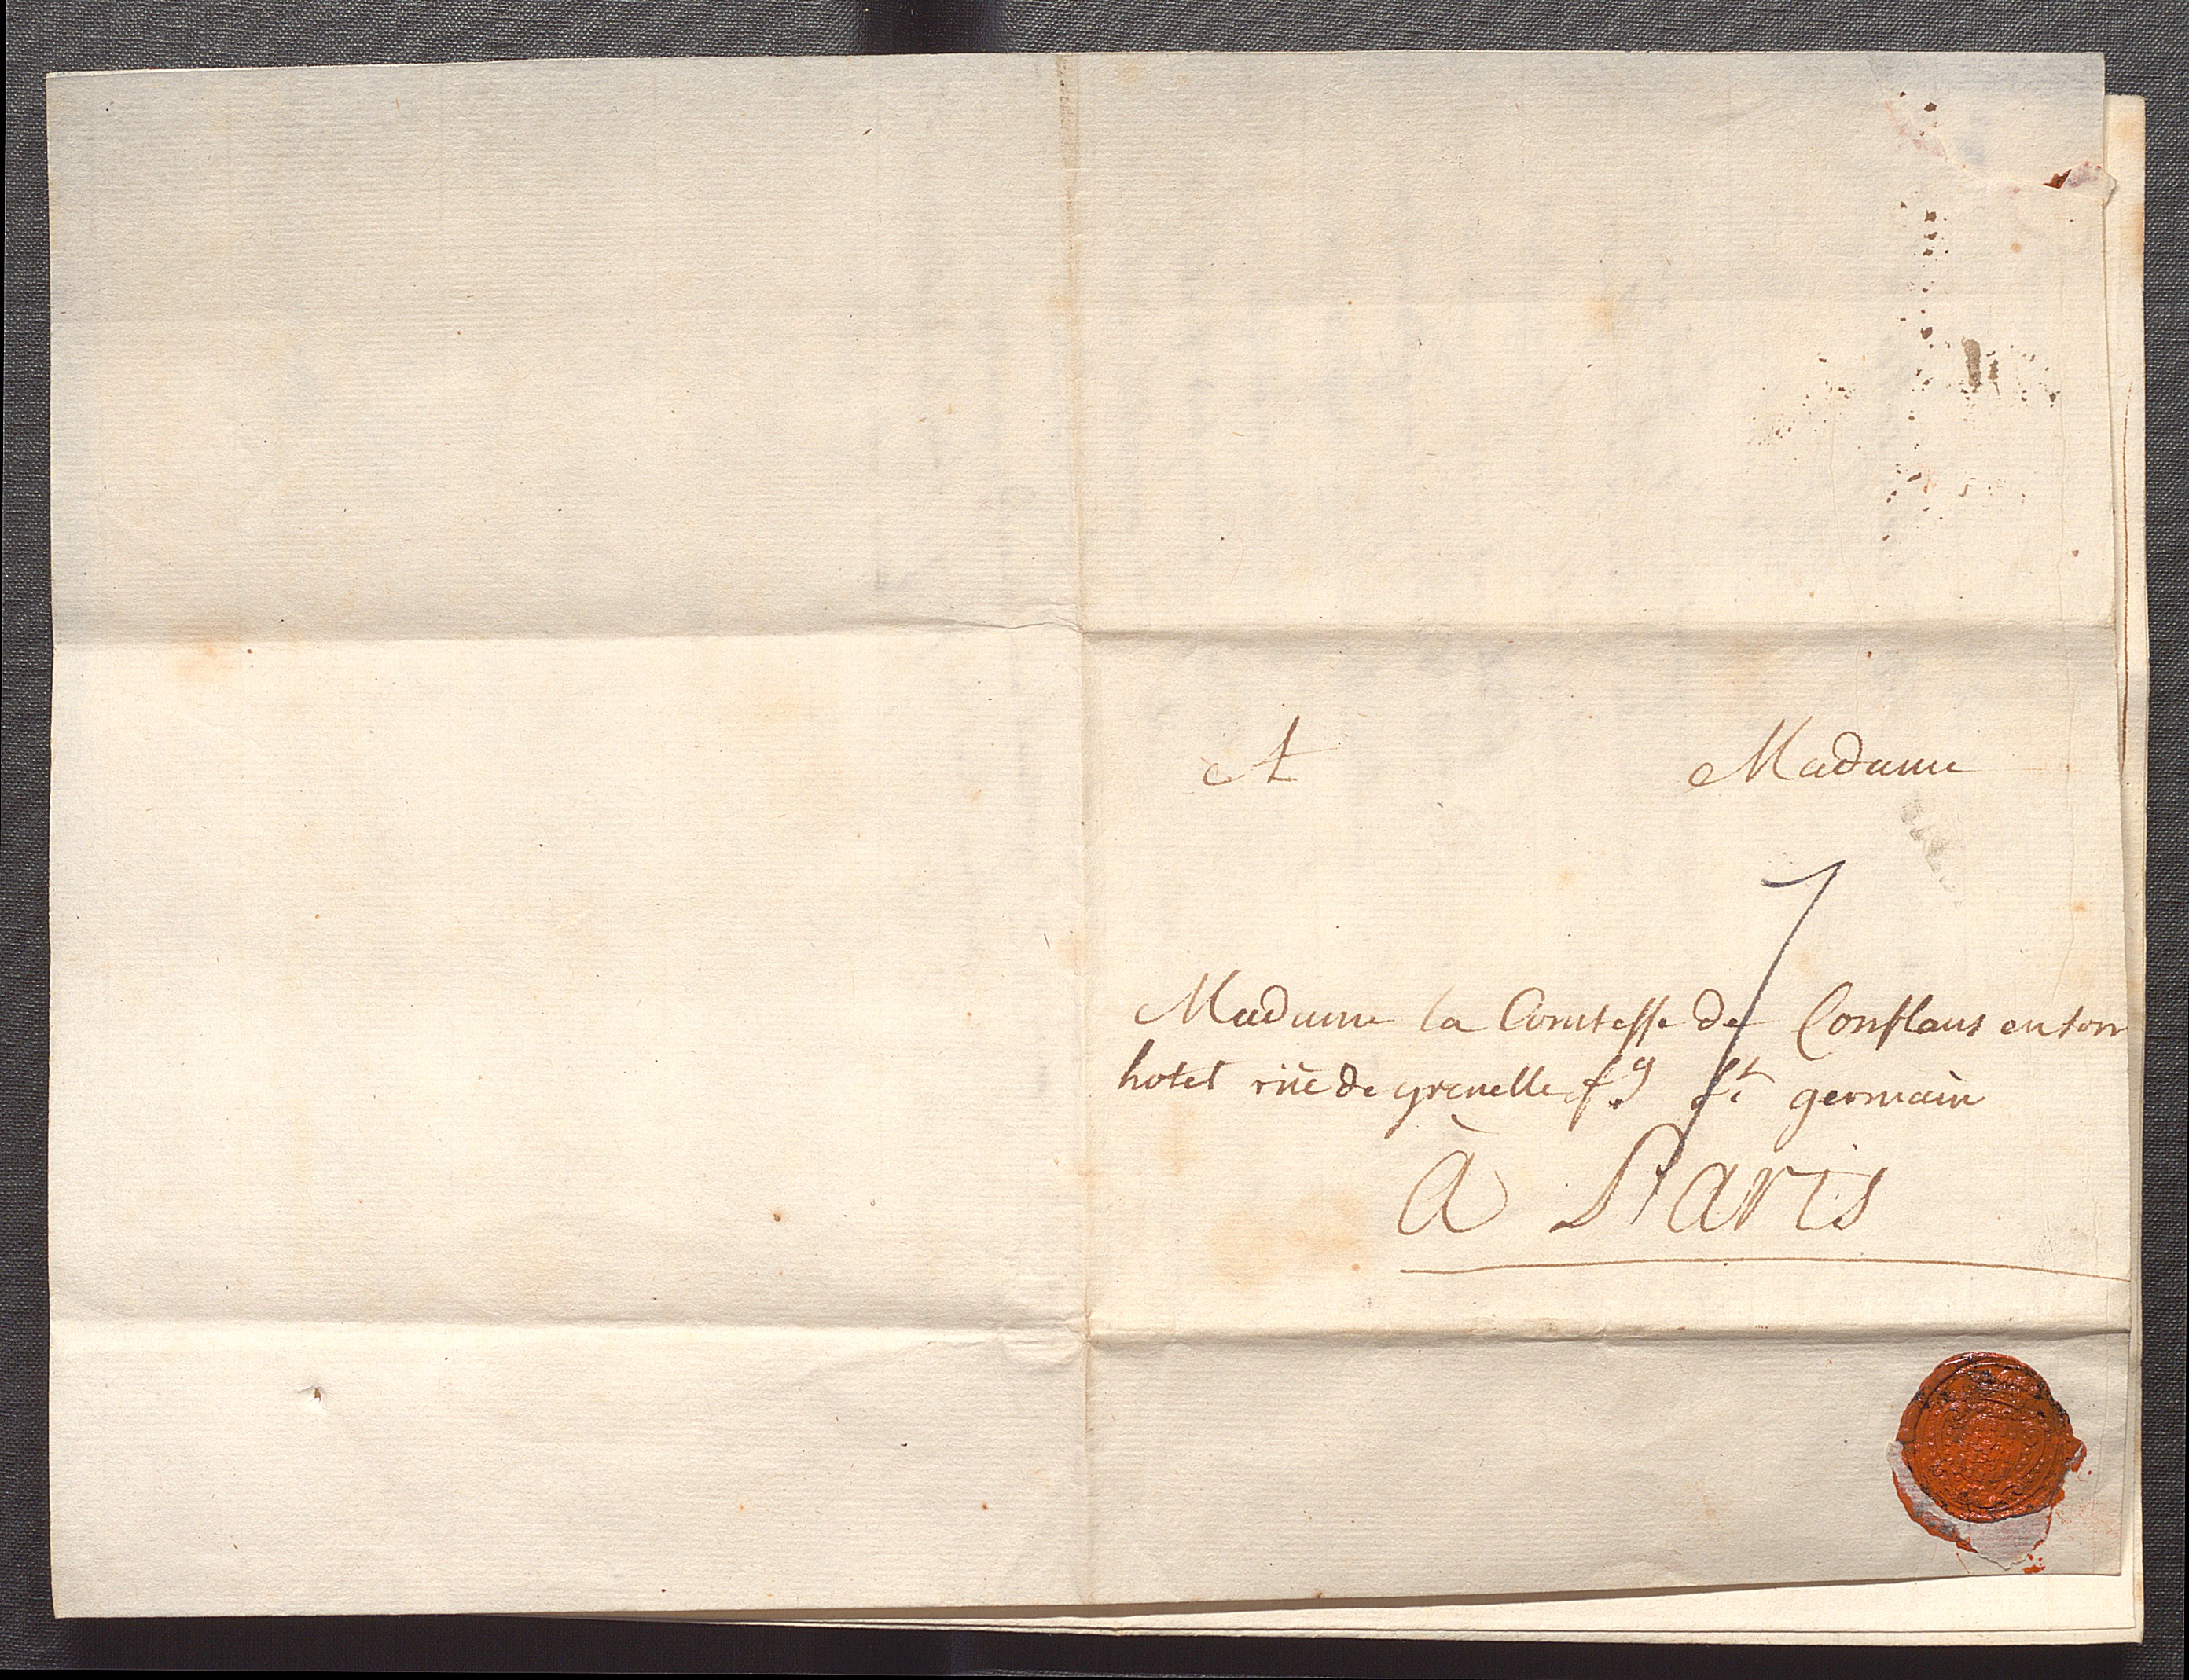 A Madame
7
Madame la Comtesse de Conflans en son
hotel rüe de grenelle f.g St germain
à Paris